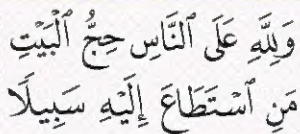 وَلِلَّهِ عَلَى ٱلنَّاسِ حِجُّ ٱلْبَيْتِ
مَنِ ٱسْتَطَاعَ إِلَيْهِ سَبِيلًا